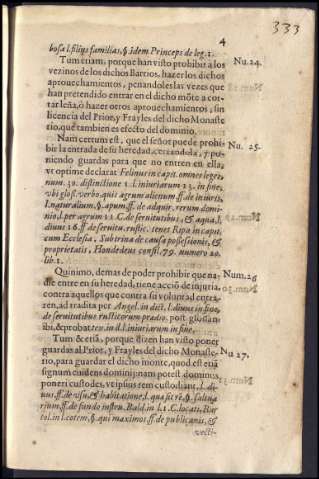 333
4
bosa l. filius familias, § idem Princeps de leg. 1.
Tum etiam, porque han visto prohibir a los
vezinos de los dichos Barrios, hazer los dichos
aprouechamientos, penandoles las vezes que
han pretendido entrar en el dicho mõte a cor-
tar leña, ò hazer otros aprouechamientos, sin
licencia del Prior, y Frayles del dicho Monaste
rio, que tambien es efecto del dominio.
Nu. 24.
Nam certum est, que el señor puede prohi-
bir la entrada de su heredad, cerandola, y po
niendo guardas para que no entren en ella,
vt optime declarat Felinus in capit. omnes leges,
num. 30. distinctione 1. l. iniuriarum 13. in fine,
vbi glos. verbo, quis agrum alienum ff. de iniuris,
l. naturalium, § apum. ff. de adquir. rerum domi-
nio, l. per agrum 11. C. de seruitutibus, & aqua, l.
diuus 16. ff. de seruitu. rustic. tenet Ripa in caput.
cum Ecclesia, Sutrina de causa possessionis, &
proprietatis, Hondedeus consil. 79. numero 20.
lib. 1.
Nu. 25.
Quinimo, demas de poder prohibir que na-
die entre en su heredad, tiene acciõ de injuria,
contra aquellos que contra su voluntad entra-
ren, ad tradita per Angel. in dict. l. diuus in fine,
de seruitutibus rusticorum prædio. post glosam
ibi, & probat tex. in d. l. iniuriarum in fine.
Num. 26
Tum & etiã, porque dizen han visto poner
guardas al Prior, y Frayles del dicho Monaste-
rio, para guardar el dicho monte, quod est etiã
signum euidens dominij, nam potest dominus,
poneri custodes, vt ipsius rem custodiant, l. di-
uus, ff. de vsu, & habitatione, l. qua sit rê, § saltua
rium, ff. de fundo instru. Bald. in l. 1. C. locati, Bar
tol. in l. cotem, §. qui maximos ff. de publicanis, &
Nu 27.
vecti-